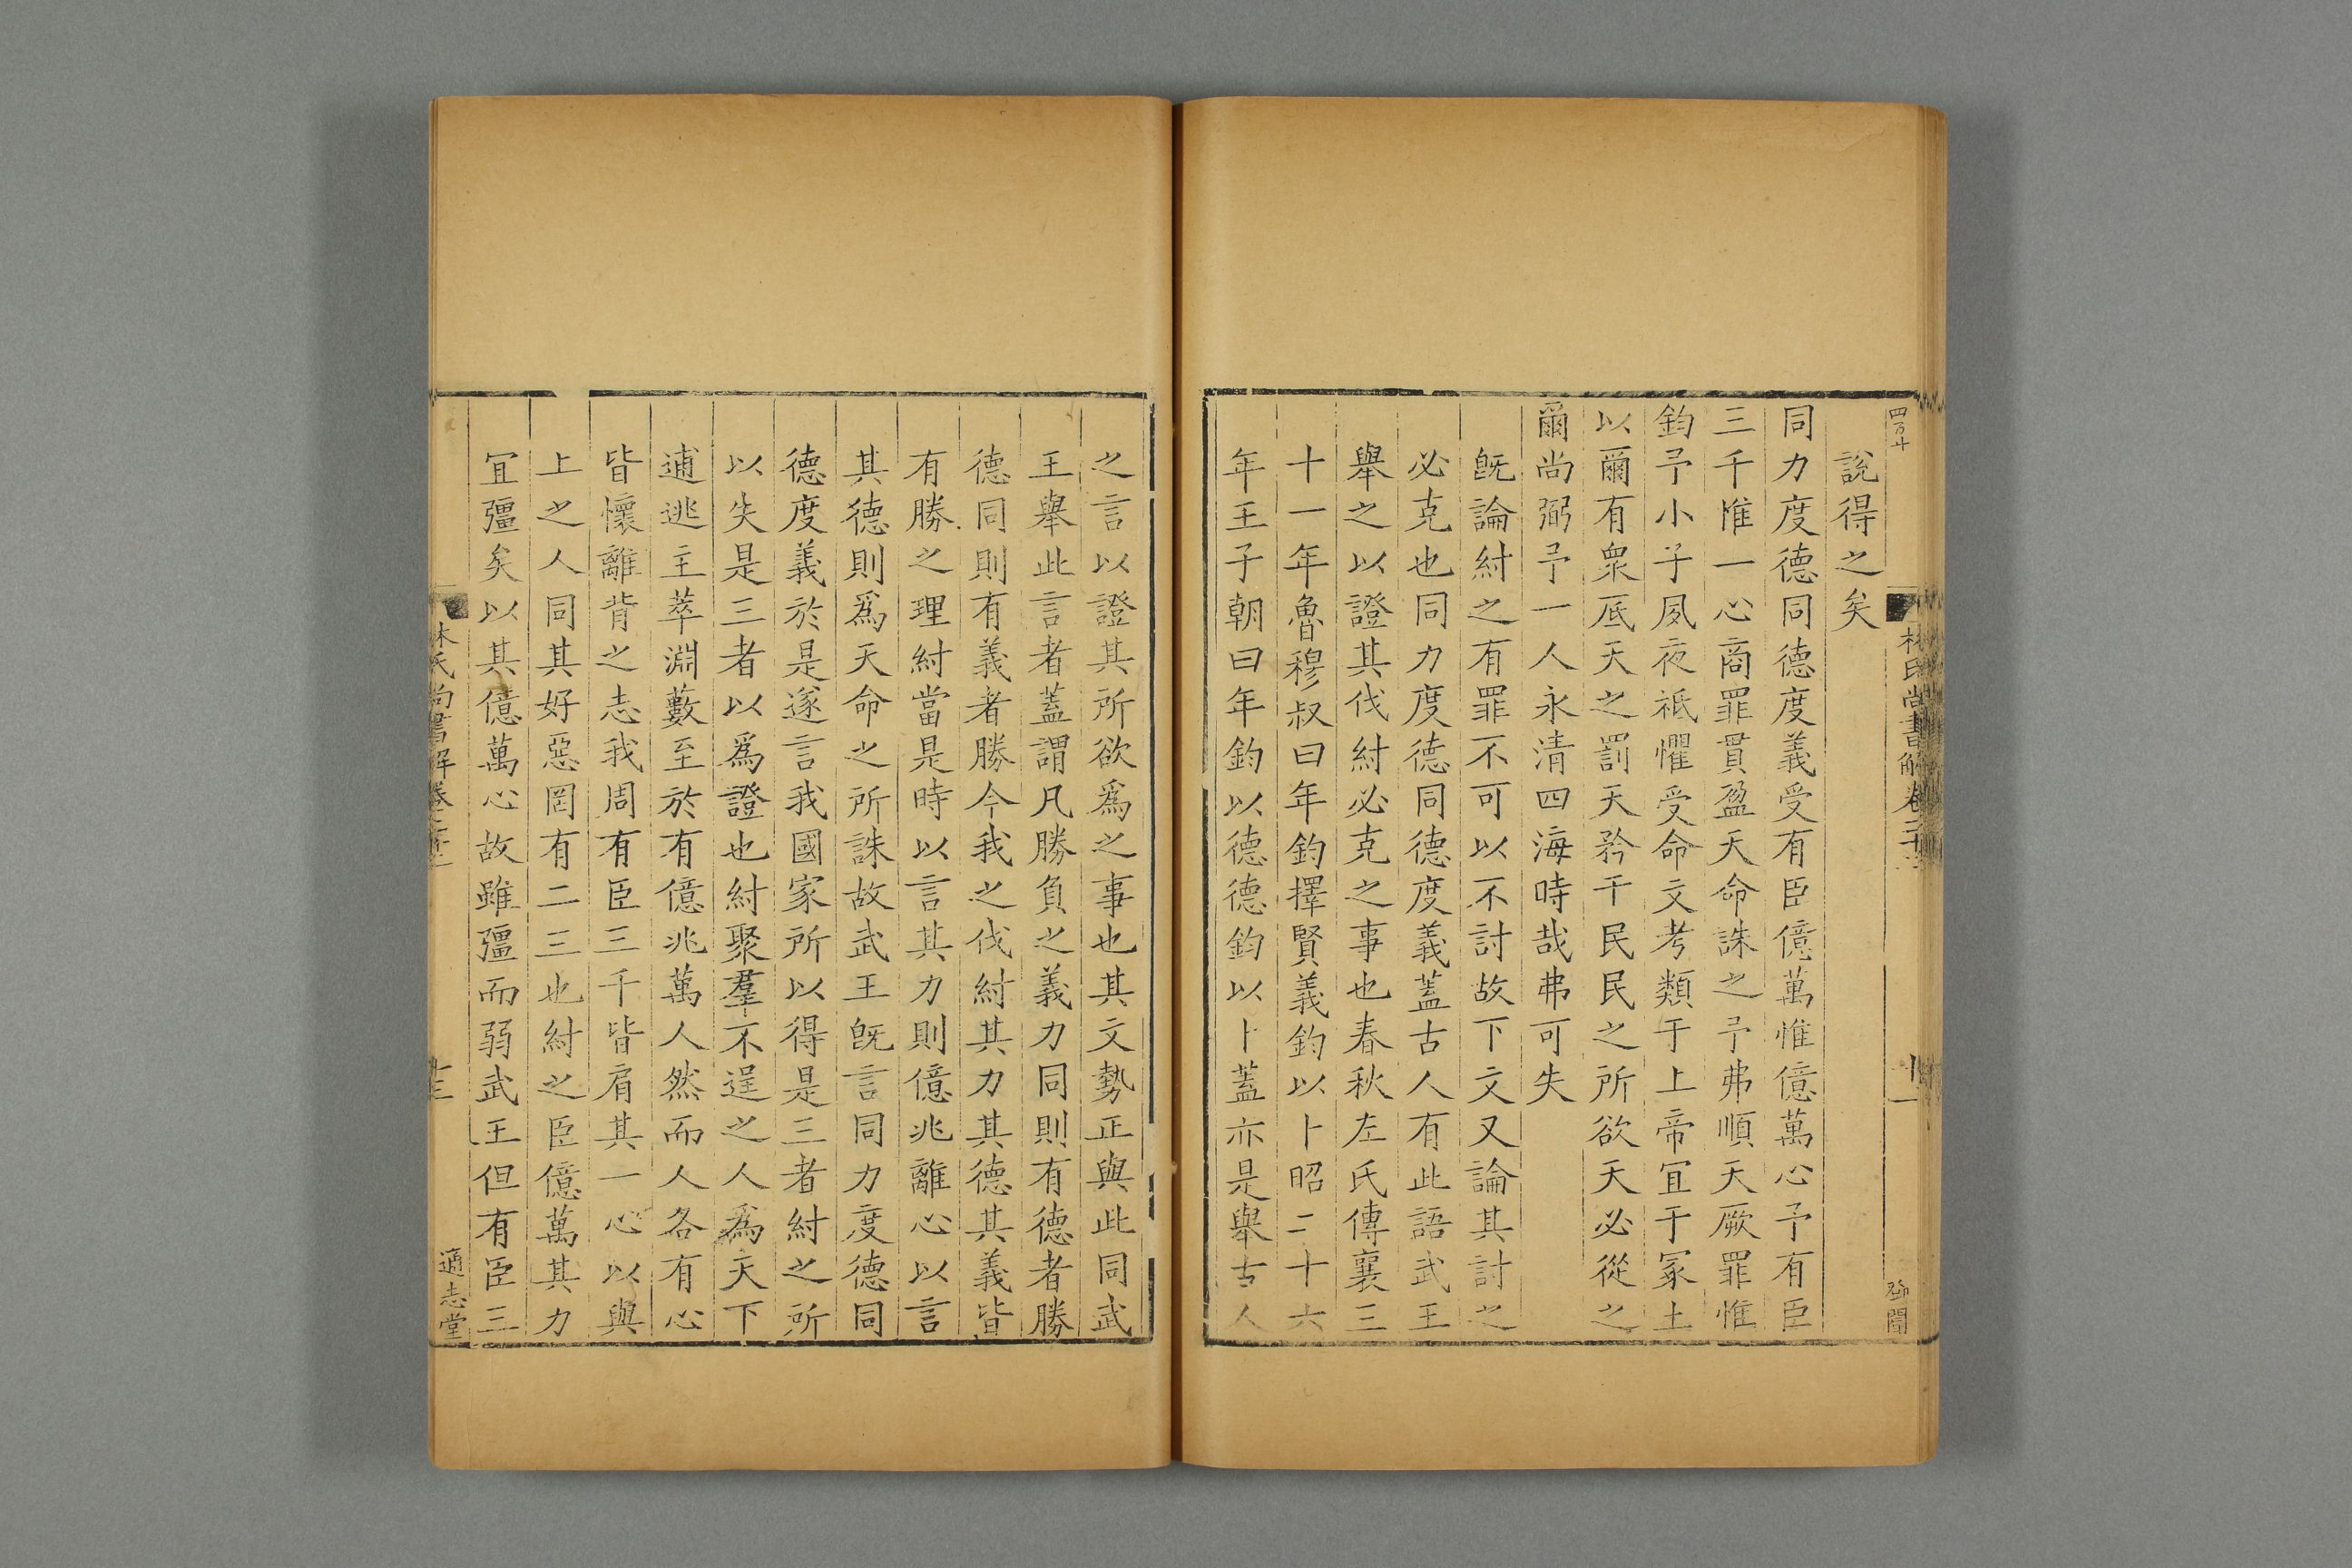 說得之矣
同力度德同德度義受有臣億萬惟億萬心予有臣
三千惟一心商罪貫盈天命誅之予弗順天厥罪惟
鈞予小子夙夜祗懼受命文考類于上帝宜于冢土
以爾有衆厎天之罰天矜于民民之所欲天必從之
爾尚弼予一人永清四海時哉弗可失
旣論紂之有罪不可以不討故下文又論其討之
必克也同力度德同德度義蓋古人有此語武王
舉之以證其伐紂必克之事也春秋左氏傳襄三
十一年魯穆叔曰年鈞擇賢義鈞以卜昭二十六
年王子朝曰年鈞以德德鈞以卜蓋亦是舉古人
之言以證其所欲爲之事也其文勢正與此同武
王舉此言者蓋謂凡勝負之義力同則有德者勝
德同則有義者勝今我之伐紂其力其德其義皆
有勝之理紂當是時以言其力則億兆離心以言
其德則爲天命之所誅故武王旣言同力度德同
德度義於是遂言我國家所以得是三者紂之所
以失是三者以爲證也紂聚羣不逞之人爲天下
逋逃主萃淵藪至於有億兆萬人然而人各有心
皆懷離背之志我周有臣三千皆肩其一心以與
上之人同其好惡罔有二三也紂之臣億萬其力
宜彊矣以其億萬心故雖彊而弱武王但有臣三
林氏尚書解卷二十二
通志堂